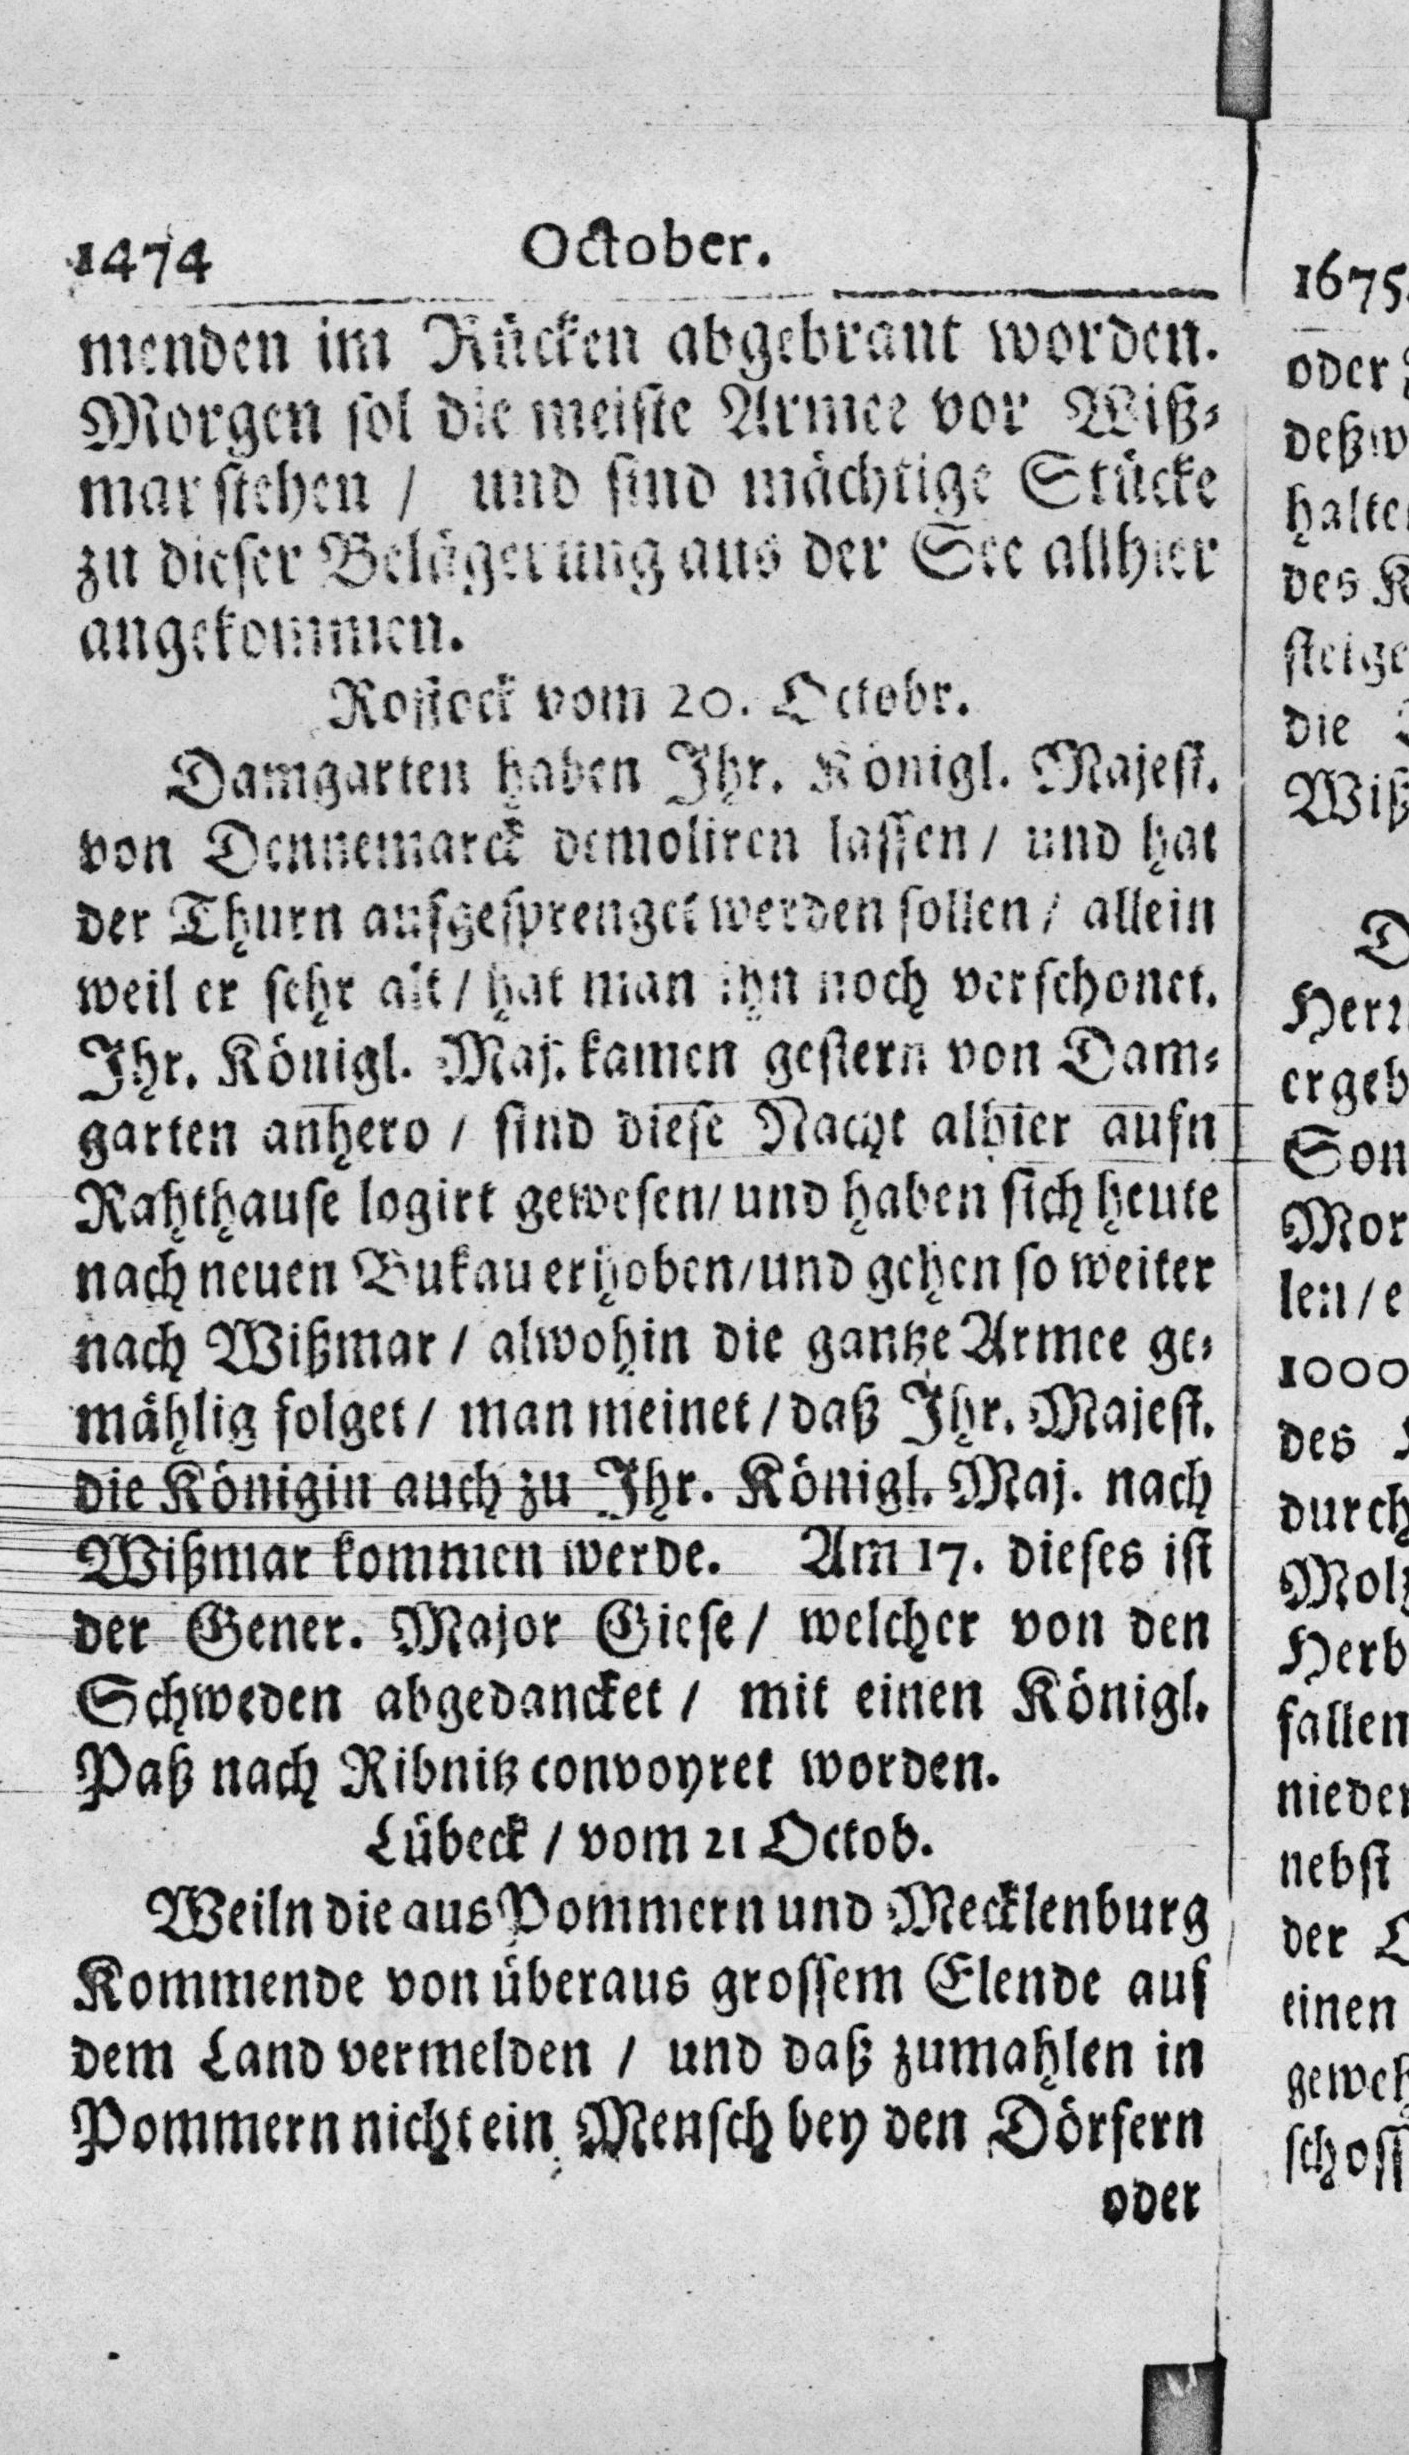 1474 October.
menden im Rücken abgebrant worden.
Morgen sol die meiste Armee vor Wiß-
mar stehen / und sind mächtige Stücke
zu dieser Belägerung aus der See allhier
angekommen.
Rostock vom 20. Octobr.
Damgarten haben Ihr. Königl. Majest.
von Dennemarck demoliren lassen / und hat
der Thurn aufgesprenget werden sollen / allein
weil er sehr alt / hat man ihn noch verschonet.
Ihr. Königl. Maj. kamen gestern von Dam-
garten anhero / sind diese Nacht alhier aufn
Rahthause logirt gewesen / und haben sich heute
nach neuen Bukau erhoben / und gehen so weiter
nach Wißmar / alwohin die gantze Armee ge-
mählig folget / man meinet / daß Ihr. Majest.
die Königin auch zu Ihr. Königl. Maj. nach
Wißmar kommen werde. Am 17. dieses ist
der Gener. Major Giese / welcher von den
Schweden abgedancket / mit einen Königl.
Paß nach Ribnitz convoyret worden.
Lübeck / vom 21 Octob.
Weiln die aus Pommern und Mecklenburg
Kommende von überaus grossem Elende auf
dem Land vermelden / und daß zumahlen in
Pommern nicht ein Mensch bey den Dörfern
oder
1675.
oder
deßw
halte
des K
steige
die
Wiß
D
Herr
ergeb
Son
Mor
len / e
1000
des
durch
Moltz
Herb
fallen
nieder
nebst
der
einen
geweh
schoss